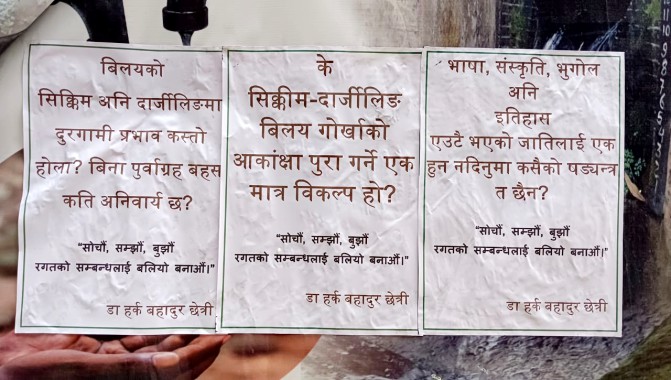 बिलयको
सिक्किम अनि दार्जीलिङमा
दुरगामी प्रभाव कस्तो
होला? बिना पुर्वाग्रह बहस
कति अनिवार्य छ?
"सोचौं, सम्झौं, बुझौं
रगतको सम्बन्धलाई बलियो बनाऔं।"
डा हर्क बहादुर छेत्री
के
सिक्कीम-दार्जीलिङ
बिलय गोर्खाको
आकांक्षा पुरा गर्ने एक
मात्र विकल्प हो?
"सोचौं, सम्झौं, बुझौं
रगतको सम्बन्धलाई बलियो बनाऔं।"
डा हर्क बहादुर छेत्री
भाषा, संस्कृति, भुगोल
अनि
इतिहास
एउटै भएको जातिलाई एक
हुन नदिनुमा कसैको षड्यन्त्र
त छैन?
"सोचौं, सम्झौं, बुझौं
रगतको सम्बन्धलाई बलियो बनाऔं।"
डा हर्क बहादुर छेत्री